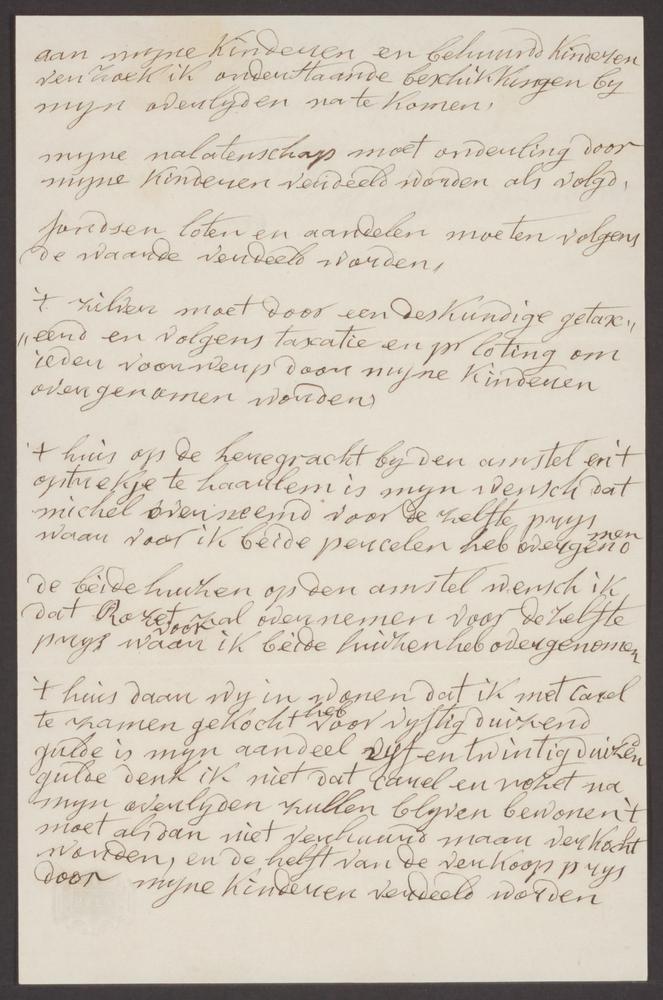 aan myne Kinderen en behuwd Kinderen
verzoek ik onderstaande beschikkingen by
myn overlyden na te komen,
myne nalatenschap moet onderling door
myne Kinderen verdeeld worden als volgd,
fondsen loten en aandelen moeten volgens
de waarde verdeeld worden,
't zilver moet door een deskundige getax„
„eerd en volgens taxatie en pr loting om
ieder voorwerp door myne Kinderen
overgenomen worden,
't huis op de heregracht by den amstel en 't
optrekje te haarlem is myn wensch dat
michel overneemd voor de zelfte prys
waar voor ik beide percelen heb overgenomen
de beide huizen op den amstel wensch ik
dat Rozet zal overnemen voor de zelfte
prys waar voor ik beide huizen heb overgenomen
't huis daar wy in wonen dat ik met Carel
te zamen gekocht heb voor vyftig duizend
gulde is myn aandeel vyf en twintig duizen
gulde denk ik niet dat Carel en rozet na
myn overlyden zullen blyven bewonen 't
moet alsdan niet verhuurd maar verkocht
worden, en de helft van de verkoop prys
door myne Kinderen verdeeld worden